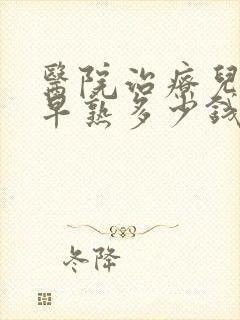 醫院治療兒
早熟多少錢
冬降